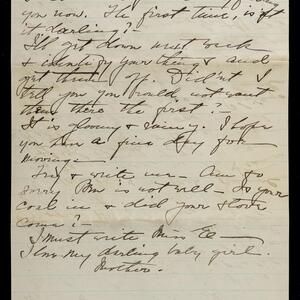 you now. The first time, isn't
it darling?-
I'll get down next week
& your things & and
get them off. Didn't I
tell you you would not want
them there the first?-
It is gloomy & rainy. I hope
you have a fine day for
moving-
Try & write me- Am so
sorry Bro is not well- Is your
coal in & did your stove
come?-
I must write Miss E-
I love my darling baby girl.
Brother.